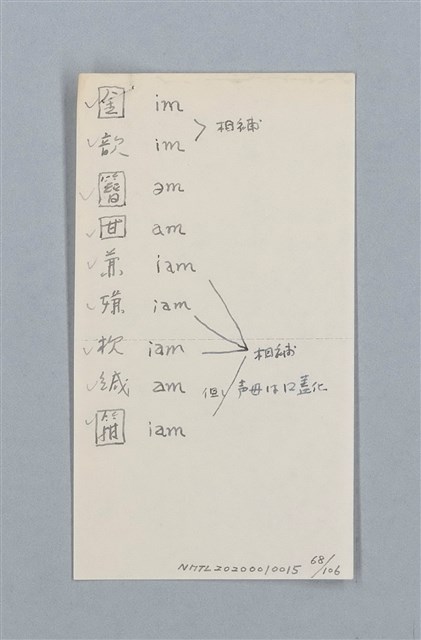 ✓金 im
相補
✓歆 im
✓簪 əm
✓甘 am
✓兼 iam
✓嫌 iam
✓杴 iam
相補
✓緘 am
但し 声母は口蓋化
✓箝 iam
NMTL20200010015 68/106